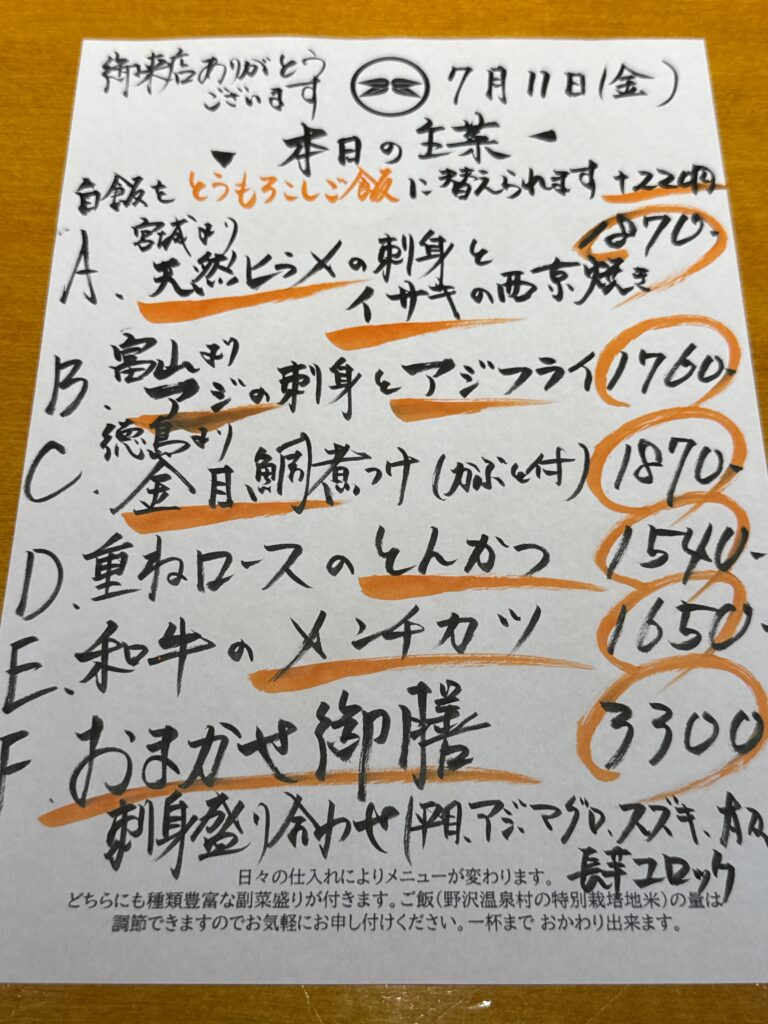 御来店ありがとう
ございます
7月11日(金)
本日の主菜
白飯を とうもろこしご飯 に替えられます +220円
A. 宮城より
天然ヒラメの刺身と
イサキの西京焼き
1870-
B. 富山より
アジの刺身とアジフライ 1760-
C. 徳島より
金目鯛煮つけ(かぶと付) 1870-
D. 重ねロースのとんかつ 1540-
E. 和牛のメンチカツ 1650-
F. おまかせ御膳 3300
刺身盛り合わせ(平目、アジ、マグロ、スズキ、
長芋コロッケ
日々の仕入れによりメニューが変わります。
どちらにも種類豊富な副菜盛りが付きます。ご飯(野沢温泉村の特別栽培地米)の量は
調節できますのでお気軽にお申し付けください。一杯まで おかわり出来ます。